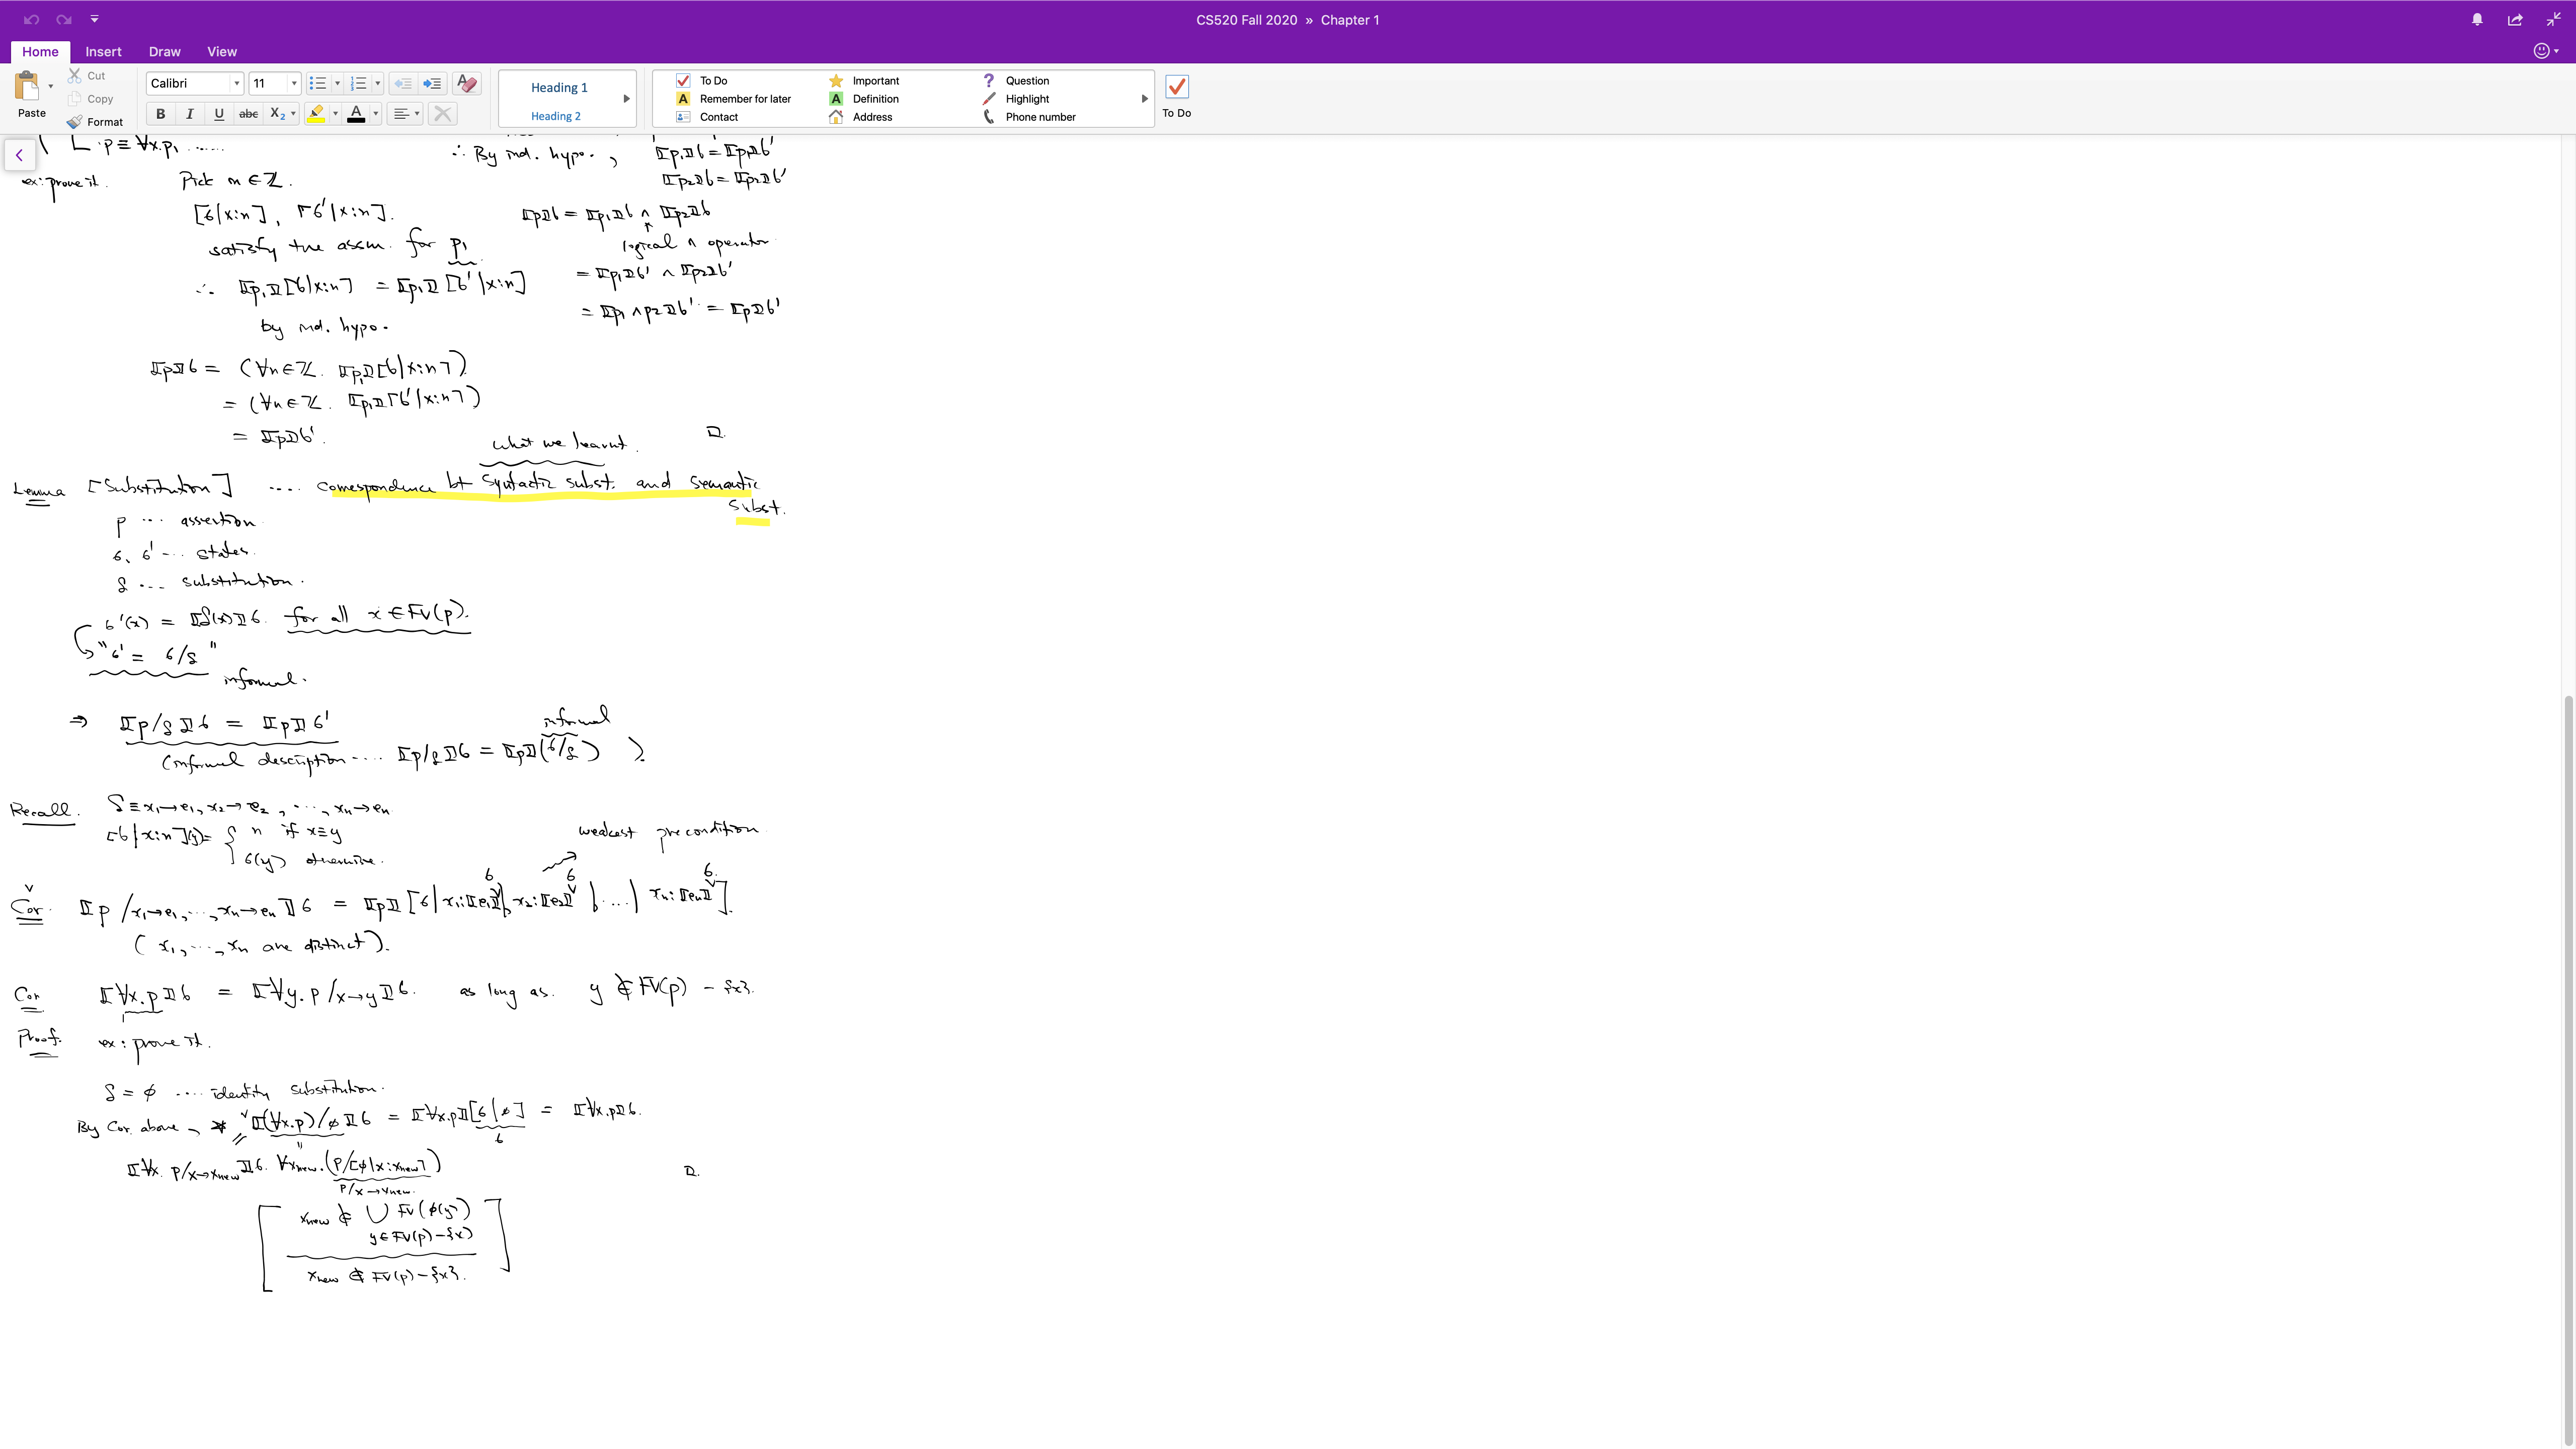 CS520 Fall 2020 » Chapter 1
Home Insert Draw View
Paste
Cut
Copy
Format
Calibri 11
B I U abc X₂ A
Heading 1
Heading 2
To Do Important Question
Remember for later Definition Highlight
Contact Address Phone number
To Do
· p ≡ ∀x.p₁ ......
ex: prove it.
Pick n ∈ ℤ.
[σ|x:n], [σ'|x:n].
satisfy the assm. for p₁
∴ ⟦p₁⟧[σ|x:n] = ⟦p₁⟧[σ'|x:n]
by ind. hypo.
⟦p⟧σ = (∀n∈ℤ. ⟦p₁⟧[σ|x:n])
= (∀n∈ℤ. ⟦p₁⟧[σ'|x:n])
= ⟦p⟧σ'.
∴ By ind. hypo., ⟦p₁⟧σ = ⟦p₁⟧σ'
⟦p₂⟧σ = ⟦p₂⟧σ'
⟦p⟧σ = ⟦p₁⟧σ ∧ ⟦p₂⟧σ
logical ∧ operator
= ⟦p₁⟧σ' ∧ ⟦p₂⟧σ'
= ⟦p₁ ∧ p₂⟧σ' = ⟦p⟧σ'
□.
what we learnt.
Lemma [Substitution] .... correspondence bt syntactic subst. and semantic
subst.
p ... assertion
σ, σ' ... states.
δ ... substitution.
σ'(x) = ⟦δ(x)⟧σ. for all x ∈ FV(p).
"σ' = σ/δ"
informal.
⇒ ⟦p/δ⟧σ = ⟦p⟧σ'
informal
(informal description .... ⟦p/δ⟧σ = ⟦p⟧(σ/δ) ).
Recall. δ ≡ x₁→e₁, x₂→e₂, ..., xₙ→eₙ
[σ|x:n](y) = { n if x≡y
σ(y) otherwise.
weakest precondition
Cor. ⟦p/x₁→e₁, ..., xₙ→eₙ⟧σ = ⟦p⟧[σ|x₁:⟦e₁⟧σ | x₂:⟦e₂⟧σ |...| xₙ:⟦eₙ⟧σ].
(x₁, ..., xₙ are distinct).
Cor ⟦∀x.p⟧σ = ⟦∀y.p/x→y⟧σ. as long as. y ∉ FV(p) - {x}.
Proof. ex: prove it.
δ = φ .... identity substitution.
By Cor. above, ⟦(∀x.p)/φ⟧σ = ⟦∀x.p⟧[σ|φ] = ⟦∀x.p⟧σ.
σ
⟦∀x. p/x→xnew⟧σ. ∀xnew.(p/[φ|x:xnew])
p/x→xnew.
□.
xnew ∉ ∪ FV(φ(y))
y∈FV(p)-{x}
xnew ∉ FV(p)-{x}.